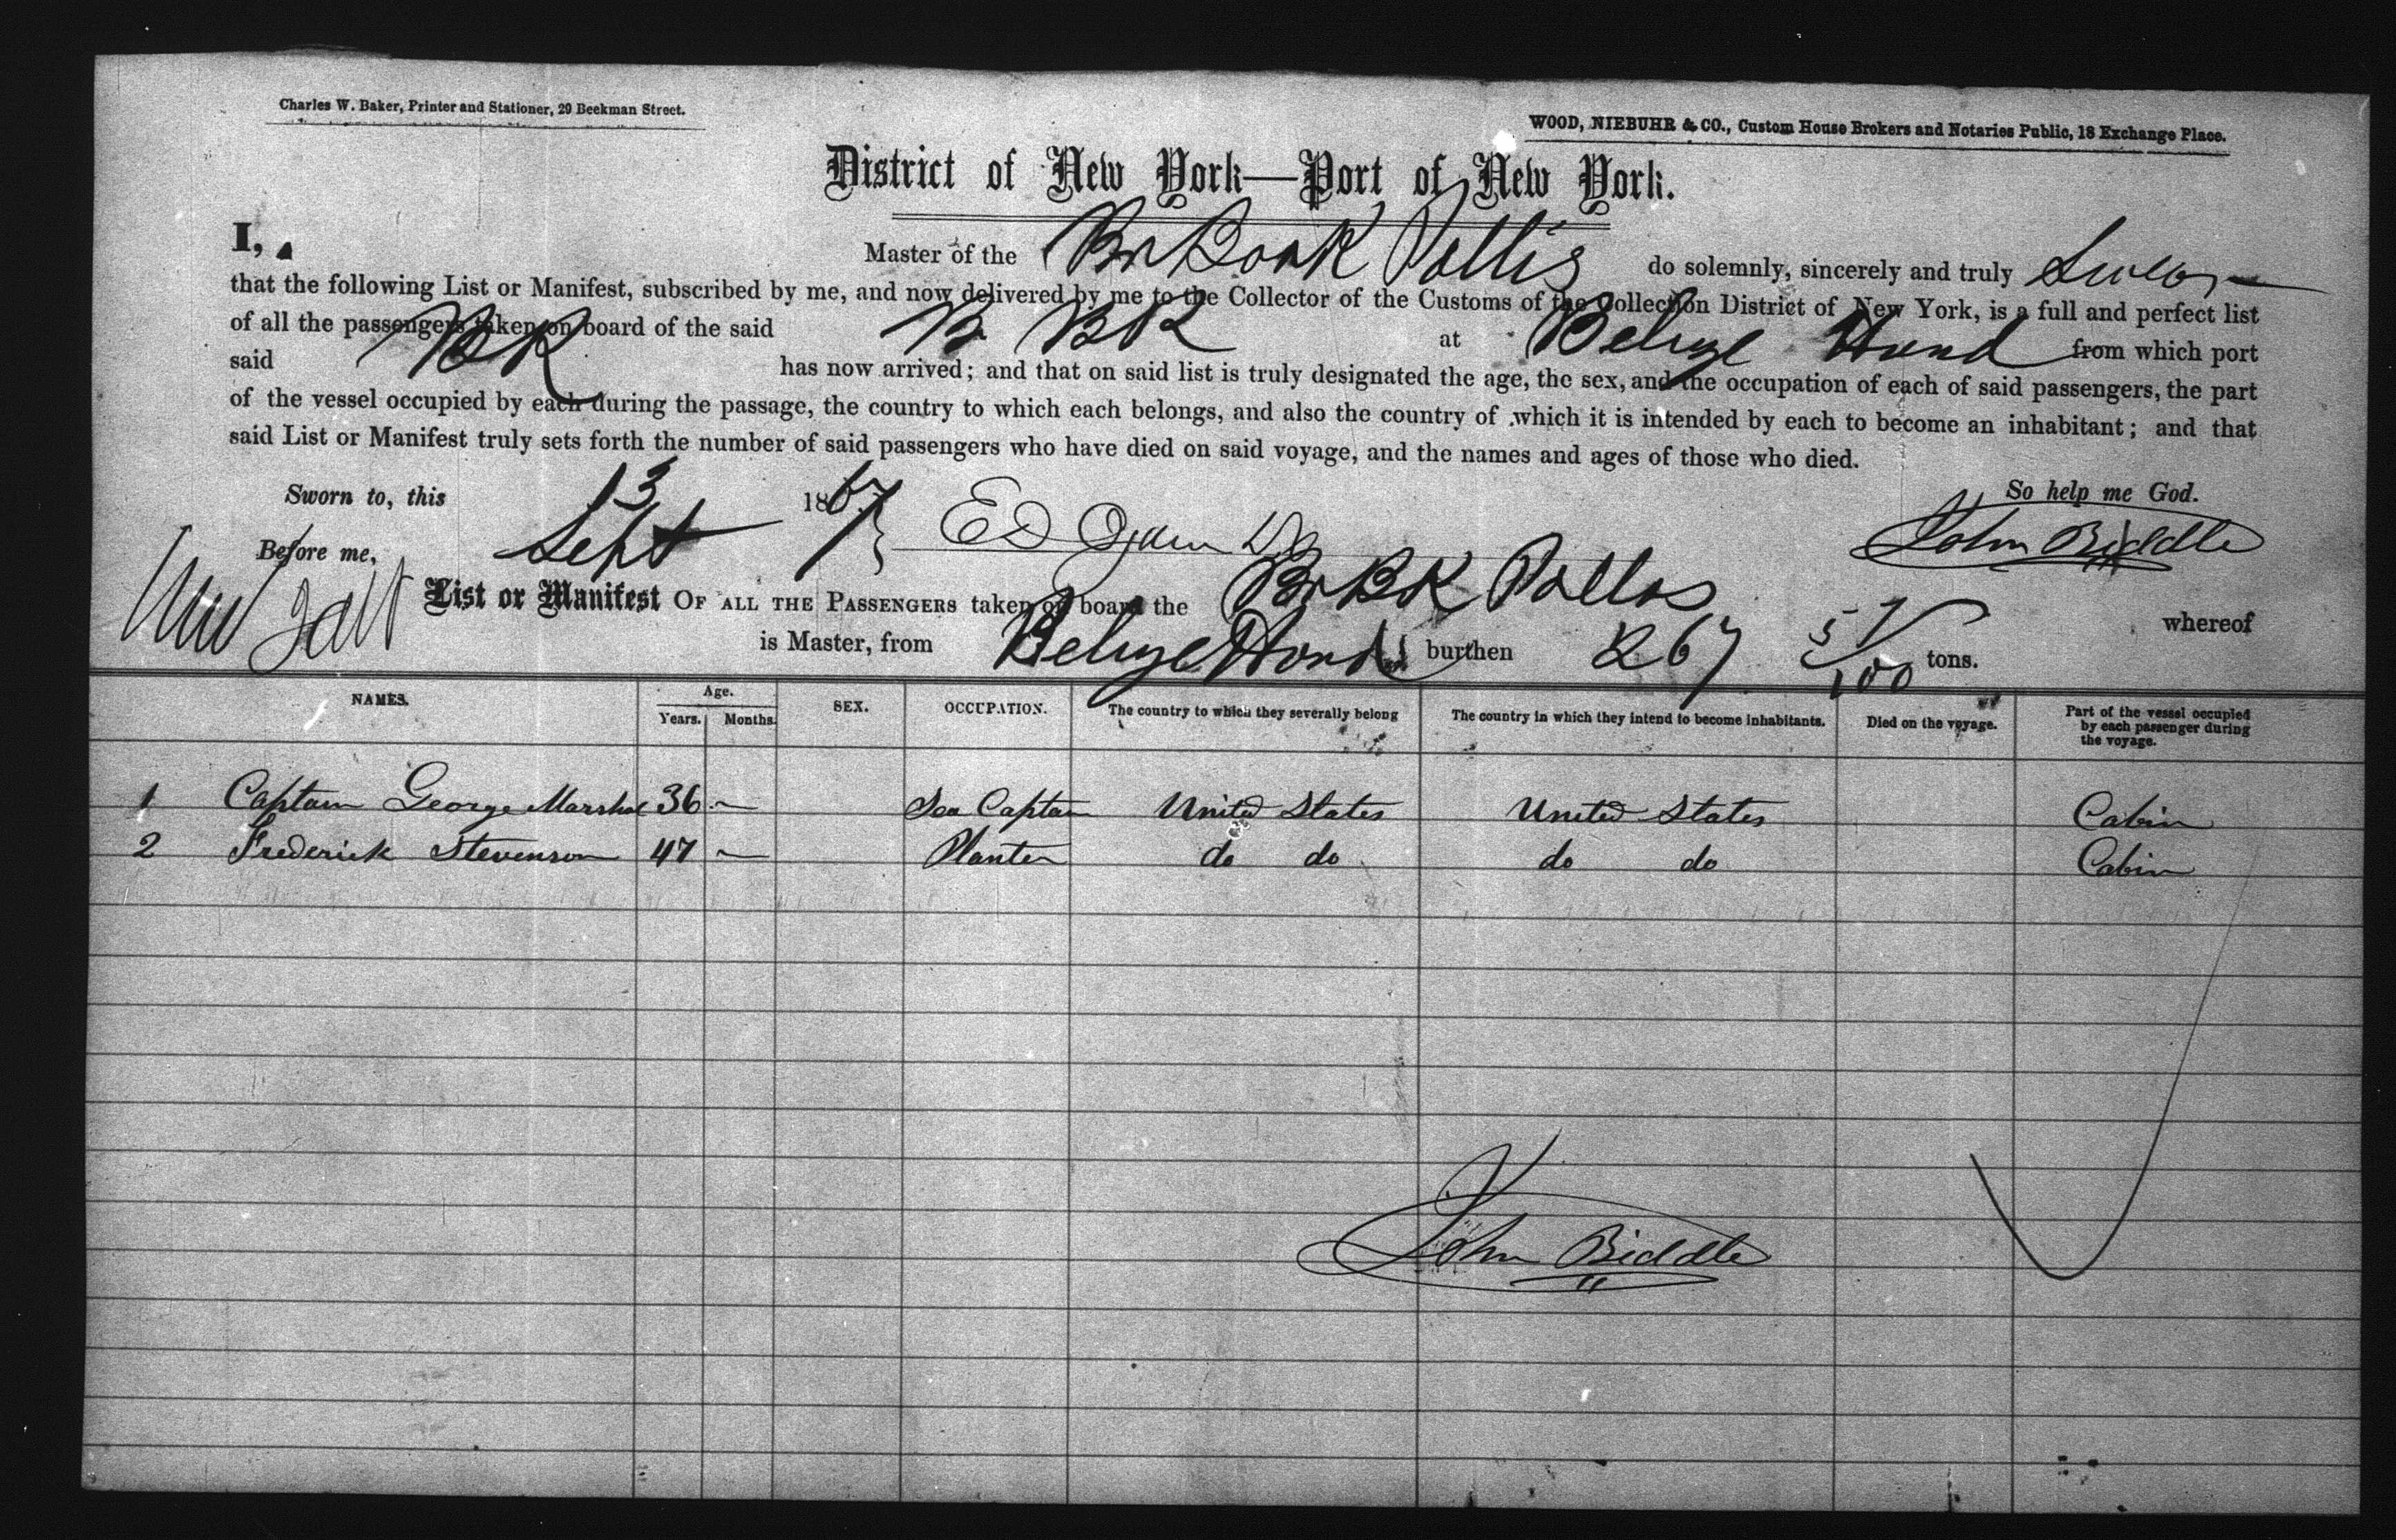 Charles W. Baker, Printer and Stationer, 29 Beekman Street.
WOOD, NIEBUHR & CO., Custom House Brokers and Notaries Public, 18 Exchange Place.
District of New York—Port of New York.
I, Master of the Br Bark Pallis do solemnly, sincerely and truly Swear
that the following List or Manifest, subscribed by me, and now delivered by me to the Collector of the Customs of the Collection District of New York, is a full and perfect list
of all the passengers taken on board of the said B BK at Belize Hond from which port
said BK has now arrived; and that on said list is truly designated the age, the sex, and the occupation of each of said passengers, the part
of the vessel occupied by each during the passage, the country to which each belongs, and also the country of which it is intended by each to become an inhabitant; and that
said List or Manifest truly sets forth the number of said passengers who have died on said voyage, and the names and ages of those who died.
Sworn to, this 13 Sept 1867 So help me God.
Before me, John Biddle
List or Manifest OF ALL THE PASSENGERS taken on board the Br BK Pallas whereof
is Master, from Belize Hond burthen 267 57/100 tons.
NAMES. Age. Years. Months. SEX. OCCUPATION. The country to which they severally belong The country in which they intend to become inhabitants. Died on the voyage. Part of the vessel occupied by each passenger during the voyage.
1 Captain George Marshal 36 — Sea Captain United States United States Cabin
2 Frederick Stevenson 47 — Planter do do do do Cabin
John Biddle